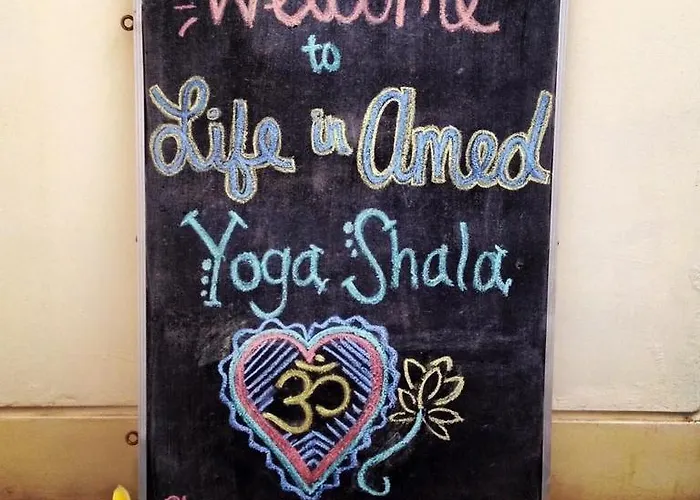 Welcome
to
Life in Amed
Yoga Shala
ॐ